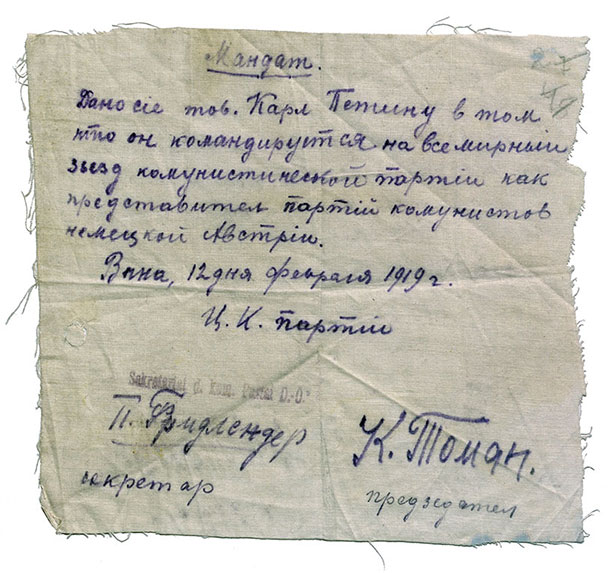 Мандат.
Дано сіе тов. Карл Петину в том
что он командируется на всемирный
зьезд комунистической партіи как
представител партій комунистов
немецкой Австріи.
Вѣна, 12 дня февраля 1919 г.
Ц. К. партіи
Sekretariat d. kom. Partei D.-Ö.
П. Фридлендер
секретар
К. Томан.
предзедател